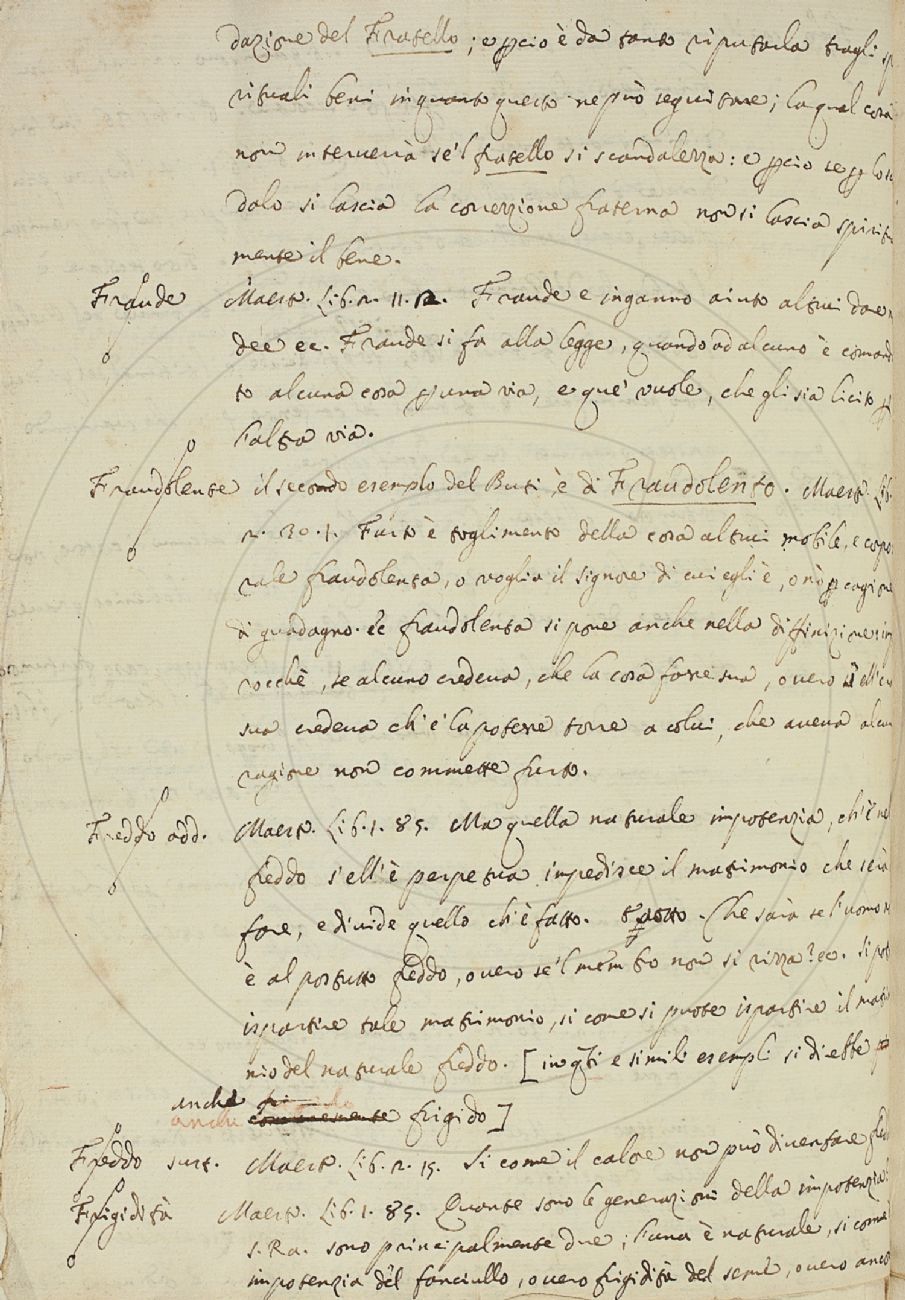 dazione del Fratello; e pcio è da tanto riputarla tragli sp
rituali beni inquanto questo ne può seguitare; la qual cosa
non interverrà se'l fratello si scandalezza: e pcio se p lo sc
dalo si lascia la correzione fraterna non si lascia spiritu
mente il bene.
Fraude Maest. Lib. 2. 11. 12. Fraude e inganno aiuto altrui dare n
dee ec. Fraude si fa alla legge, quando ad alcuno è comand
to alcuna cosa p una via, e que' vuole, che gli sia licito p
l'altra via.
Fraudolente il secondo esemplo del Buti è di Fraudolento. Maest. Lib.
2. 30. 1. Furto è toglimento della cosa altrui mobile, e corpo
rale fraudolenta, o voglia il signore di cui egli è, o nò p cagione
di guadagno. Ec fraudolenta si pone anche nella diffinizione imp
rocchè, se alcuno credeva, che la cosa fosse sua, overo
sua credeva ch'e' la potesse torre a colui, che aveva alcun
ragione non commette furto.
Freddo add. Maest. Lib. 1. 85. Ma quella naturale impotenza, ch'è ne
freddo s'ell'è perpetua impedisce il matrimonio che se' a
fare, e divide quello ch'è fatto. E sotto. Che sarà se l'uomo n
è al postutto freddo, overo se'l membro non si rizza? ec. si pot
ispartire tale matrimonio, si come si puote ispartire il mat
nio del naturale freddo. [in qsti e simili esempli si direbbe
anche frigido]
anche
Freddo sust. Maest. Lib. 2. 15. Si come il calore non può diventare fred
Frigidità Maest. Lib. 1. 85. Quante sono le generazioni della impotenzia?
s. Ra. sono principalmente due; l'una è naturale, si come
impotenzia del fanciullo, overo frigidità del seme, overo anco